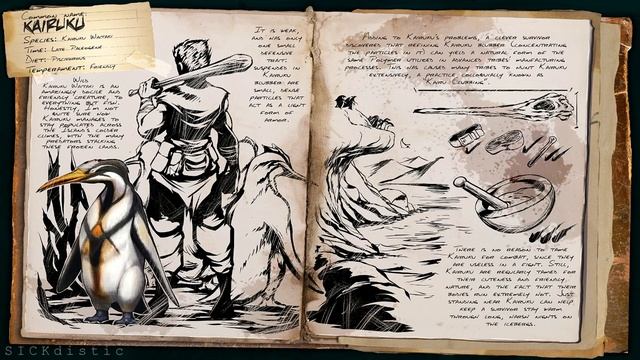 Common Name:
KAIRUKU
Species: Kairuku Waitaki
Time: Late-Paleogene
Diet: Piscivorous
Temperament: Friendly
Wild
Kairuku Waitaki is an
amazingly docile and
friendly creature, to
everything but fish.
Honestly, I'm not
quite sure how
Kairuku manages to
stay populated across
the Island's colder
climes, with the many
predators stalking
these frozen lands.
It is weak,
and has only
one small
defensive
trait:
suspended in
Kairuku
Rubber are
small, dense
particles that
act as a light
form of
armor.
Adding to Kairuku's problems, a clever survivor
discovered that refining Kairuku Rubber (concentrating
the particles in it) can yield a natural form of the
same Polymer utilized in advanced tribes' manufacturing
processes. This has caused many tribes to hunt Kairuku
extensively, a practice colloquially known as
Kair-Clubbing.
There is no reason to tame
Kairuku for combat, since they
are useless in a fight. Still,
Kairuku are regularly tamed for
their cuteness and friendly
nature, and the fact that their
bodies run extremely hot. Just
standing near Kairuku can help
keep a survivor stay warm
through long, harsh nights on
the icebergs.
SICKdistic